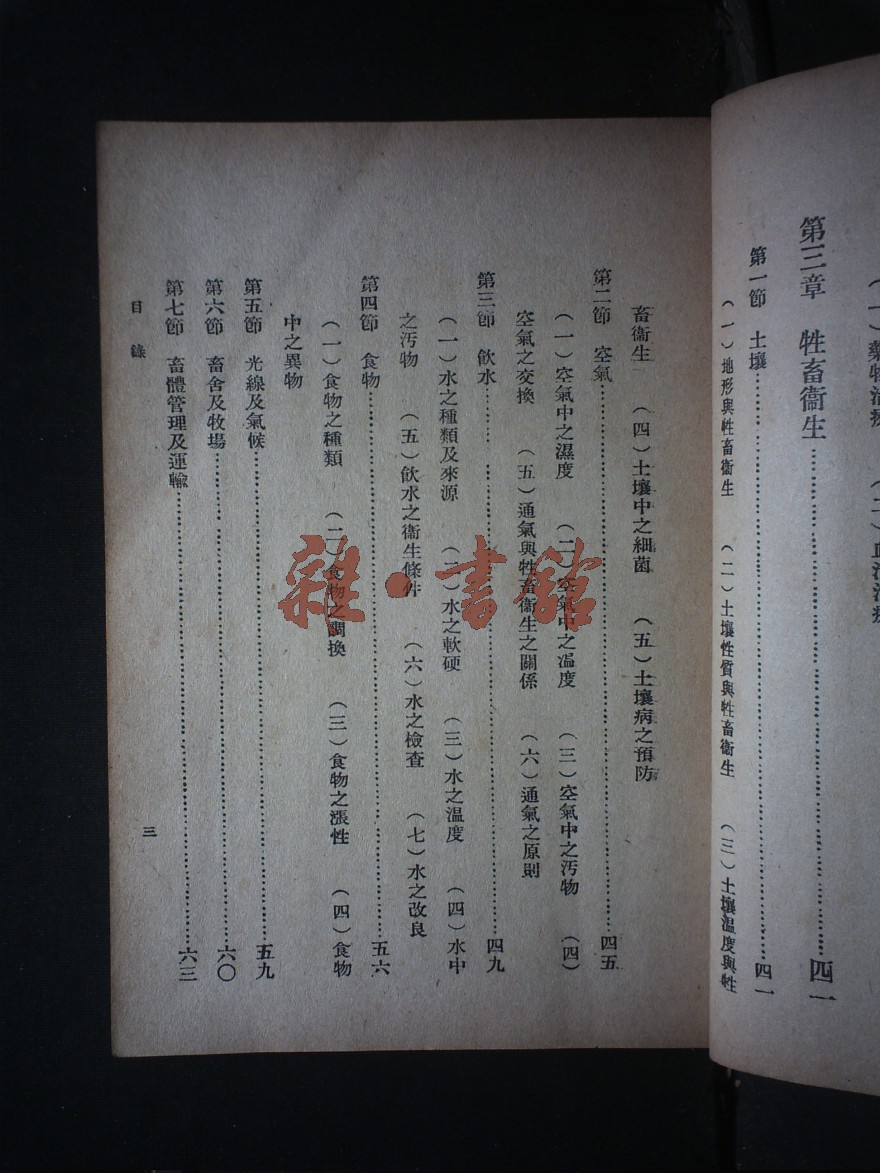 第三章　牲畜衞生……四一
第一節　土壤……四一
（一）地形與牲畜衞生　（二）土壤性質與牲畜衞生　（三）土壤溫度與牲
畜衞生　（四）土壤中之細菌　（五）土壤病之預防
第二節　空氣……四五
（一）空氣中之濕度　（二）空氣中之溫度　（三）空氣中之汚物　（四）
空氣之交換　（五）通氣與牲畜衞生之關係　（六）通氣之原則
第三節　飲水……四九
（一）水之種類及來源　（二）水之軟硬　（三）水之溫度　（四）水中
之汚物　（五）飲水之衞生條件　（六）水之檢查　（七）水之改良
第四節　食物……五六
（一）食物之種類　（二）食物之調換　（三）食物之漲性　（四）食物
中之異物
第五節　光線及氣候……五九
第六節　畜舍及牧場……六〇
第七節　畜體管理及運輸……六三
目錄
三
雜·書館